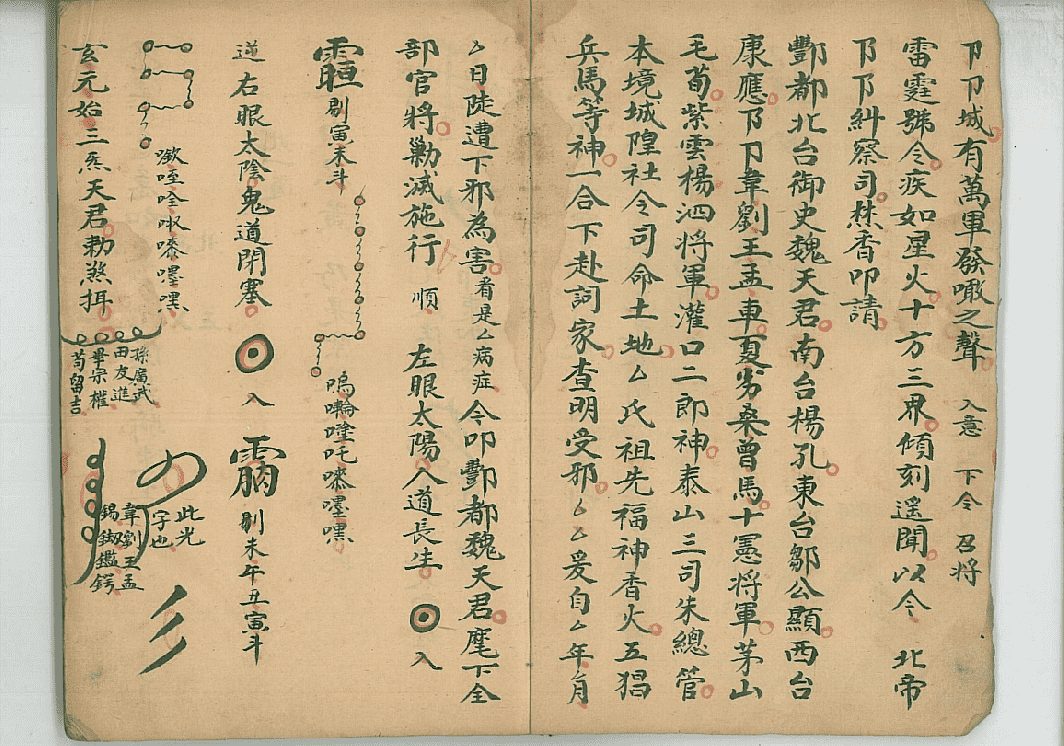 卪卪城有萬軍發噉之聲 入意 下令 召將
雷霆號令疾如星火十方三界傾刻遥聞以今 北帝
卪卪糾察司焚香叩請
酆都北台御史魏天君南台楊孔東台鄒公顯西台
康應卪卪韋劉王孟車夏芳桑曾馬十憲將軍茅山
毛荀紫雲楊泗將軍灌口二郎神泰山三司朱總管
本境城隍社令司命土地厶氏祖先福神香火五猖
兵馬等神一合下赴詞家查明受邪厶厶爰自厶年月
厶日陡遭下邪為害看是厶病症今叩酆都魏天君麾下全
部官將勦滅施行 順 左眼太陽人道長生 入
剔寅未斗
嗚囀㗌吒嚟嚜嘿
道右眼太陰鬼道閉塞 入
剔未午丑寅斗
玄元始三炁天君勅煞
孫厲武
田友進
畢宗權
荀留吉
此光
字也
韋劉王孟